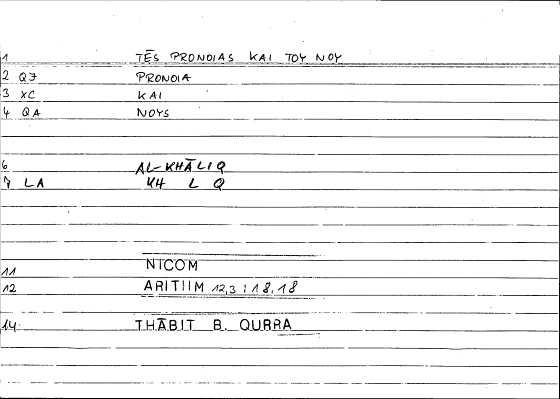 1 TĒS PRONOIAS KAI TOY NOY
2 QZ PRONOIA
3 XC KAI
4 QA NOYS
6 AL-KHĀLIQ
7 LA KH L Q
11 NICOM
12 ARITIIM 12,3 : 18,18
14 THĀBIT B. QURRA